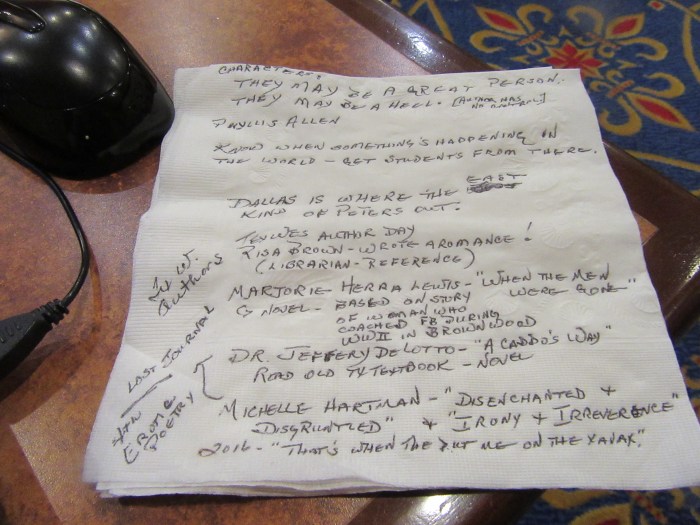 CHARACTERS.
THEY MAY BE A GREAT PERSON.
THEY MAY BE A HEEL. (AUTHOR HAS
NO CONTROL)
PHYLLIS ALLEN
KNOW WHEN SOMETHING'S HAPPENING IN
THE WORLD - GET STUDENTS FROM THERE.
DALLAS IS WHERE THE EAST
KIND OF PETERS OUT.
TX WES AUTHOR DAY
RISA BROWN - WROTE A ROMANCE!
(LIBRARIAN - REFERENCE)
MARJORIE HERRA LEWIS - "WHEN THE MEN
WERE GONE"
NOVEL - BASED ON STORY
OF WOMAN WHO
COACHED FB DURING
WWII IN BROWNWOOD
DR. JEFFERY DELOTTO - "A CADDO'S WAY"
ROAD OLD TX TEXTBOOK - NOVEL
MICHELLE HARTMAN - "DISENCHANTED +
DISGRUNTLED" + "IRONY + IRREVERENCE"
2016 - "THAT'S WHEN THE PUT ME ON THE XANAX".
W.
Authors
LOST JOURNAL
EROTIC
POETRY